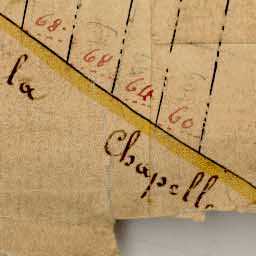 68.
68
64
60
la
Chapell